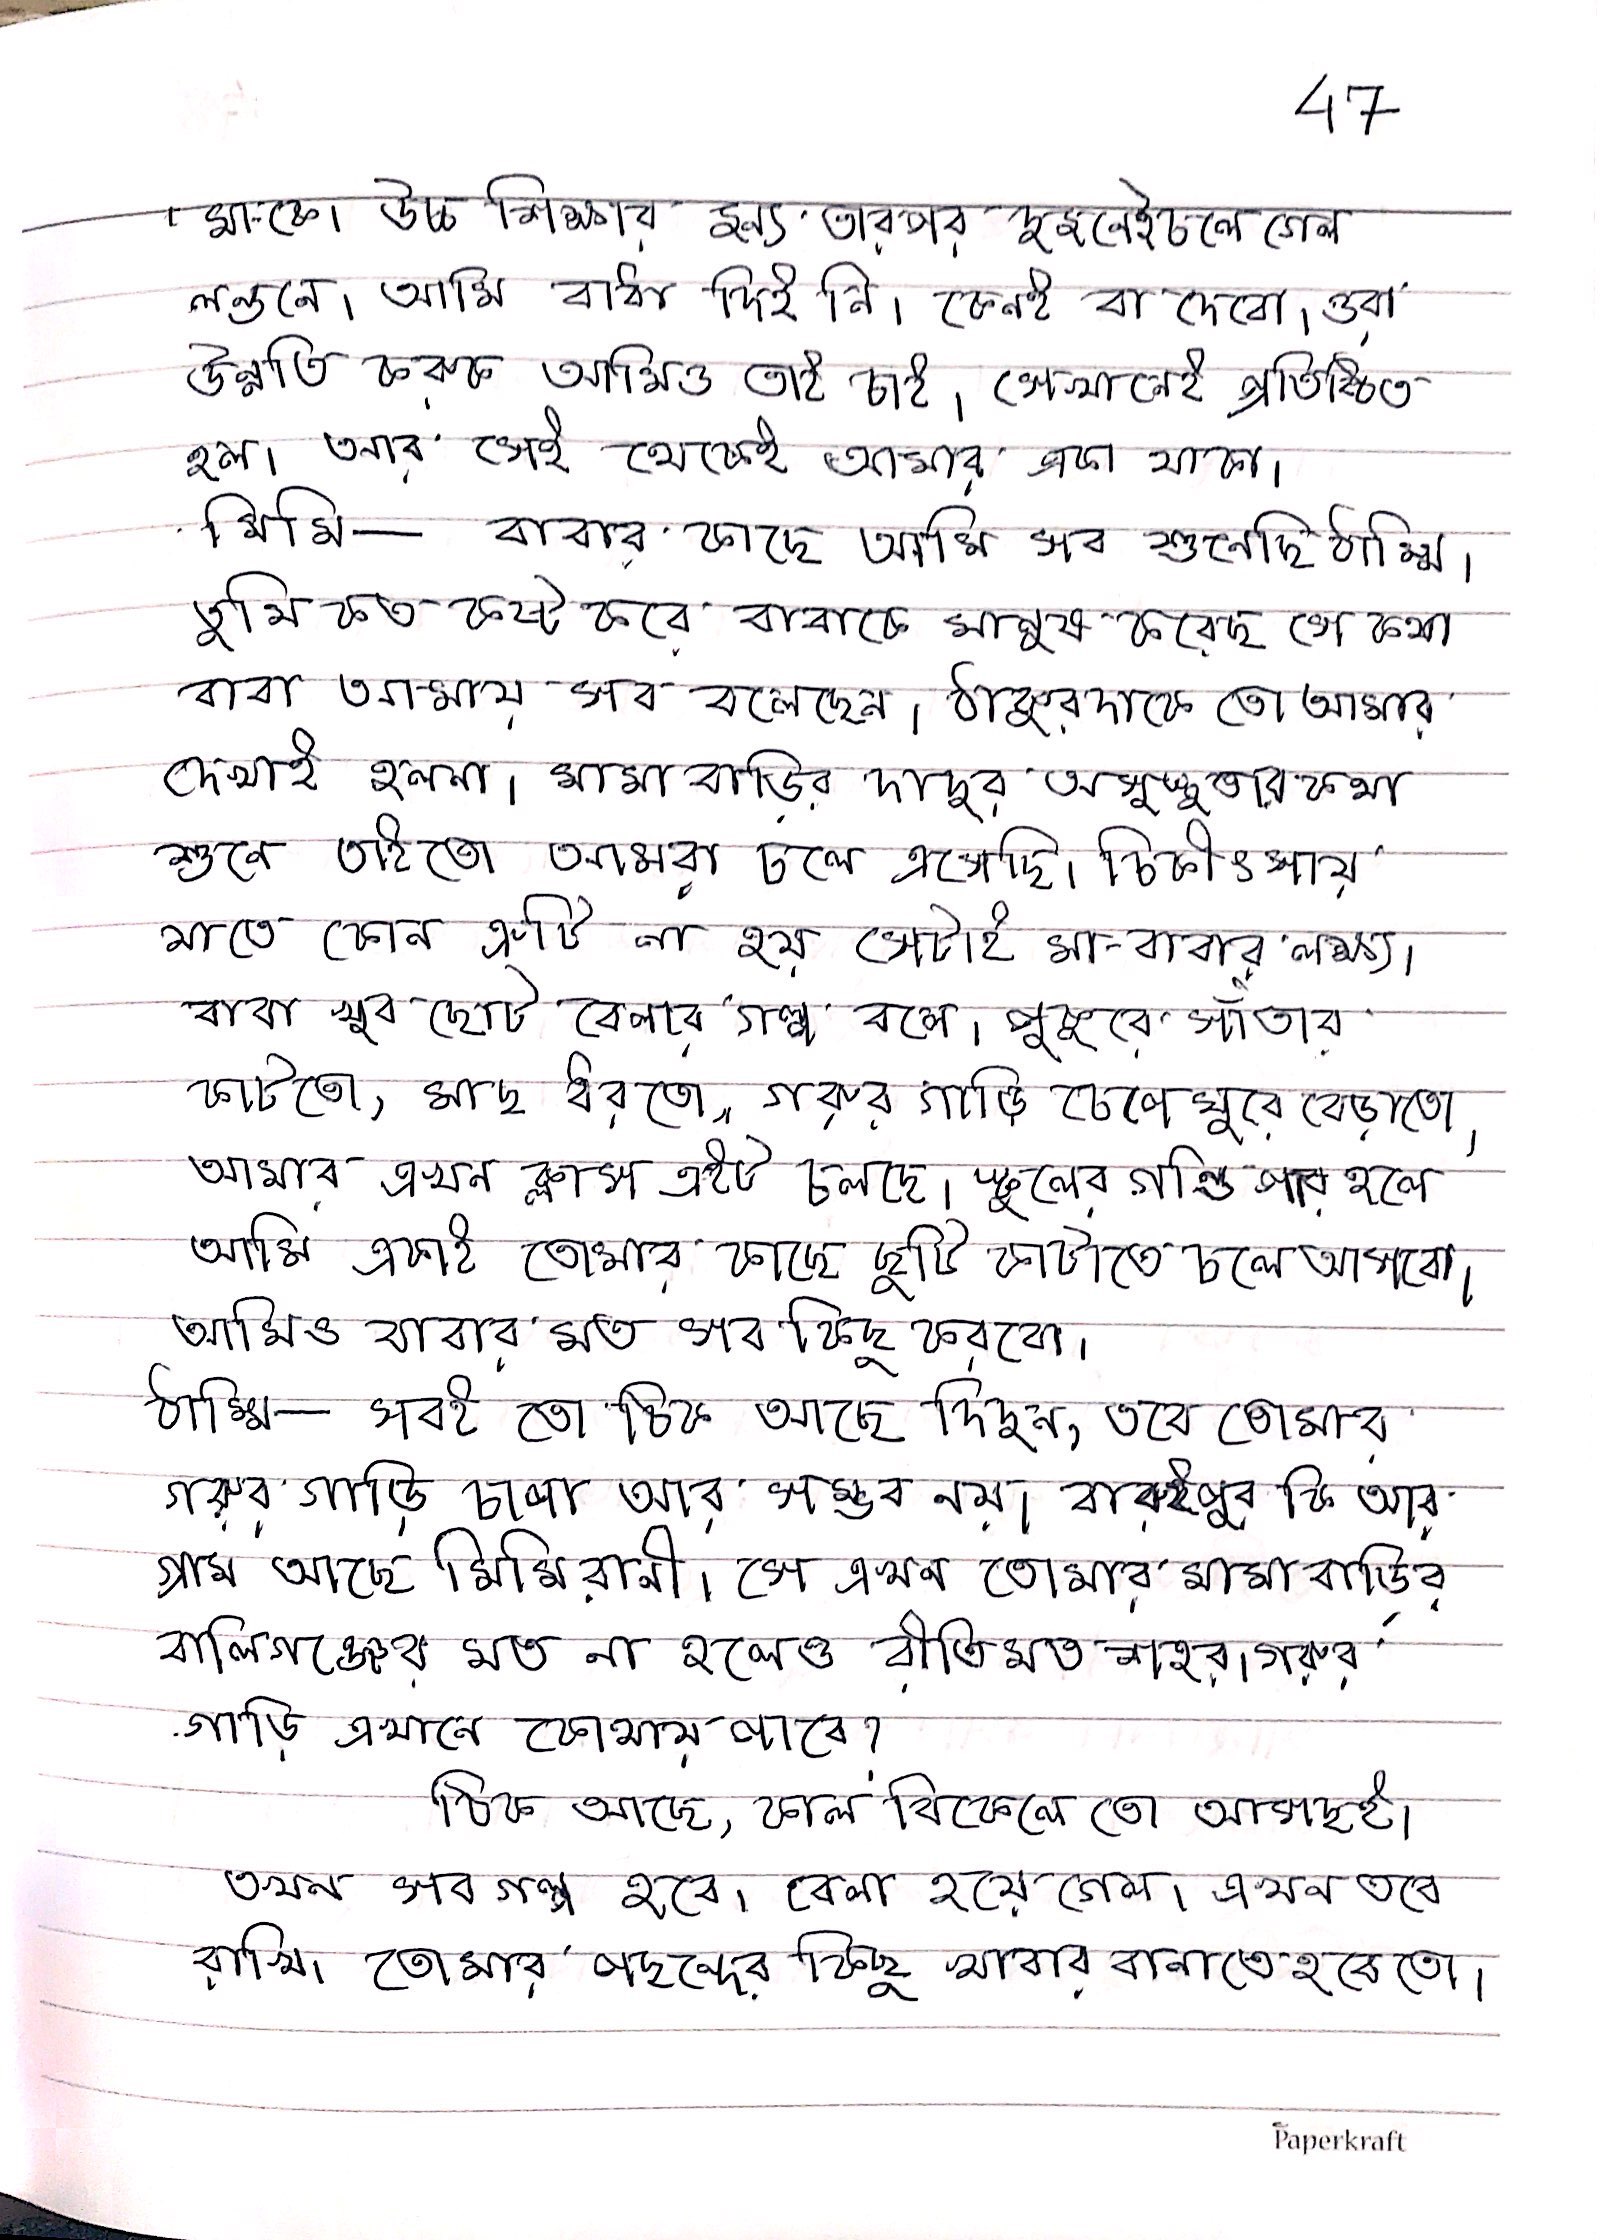 47
মা-কে। উচ্চ শিক্ষার জন্য তারপর দুজনেই চলে গেল
লন্ডনে। আমি বাধা দিই নি। কেনই বা দেবো, ওরা
উন্নতি করুক আমিও তাই চাই, সেখানেই প্রতিষ্ঠিত
হল। আর সেই থেকেই আমার একা থাকা।
মিমি— বাবার কাছে আমি সব শুনেছি ঠাম্মি।
তুমি কত কষ্ট করে বাবাকে মানুষ করেছ সে কথা
বাবা আমায় সব বলেছেন। ঠাকুরদাকে তো আমার
দেখাই হলনা। মামা বাড়ির দাদুর অসুস্থতার কথা
শুনে তাইতো আমরা চলে এসেছি। চিকীৎসায়
যাতে কোন ত্রুটি না হয় সেটাই মা-বাবার লক্ষ্য।
বাবা খুব ছোট বেলার গল্প বলে। পুকুরে সাঁতার
কাটতো, মাছ ধরতো, গরুর গাড়ি চেপে ঘুরে বেড়াতো,
আমার এখন ক্লাস এইট চলছে। স্কুলের গন্ডি পার হলে
আমি একাই তোমার কাছে ছুটি কাটাতে চলে আসবো।
আমিও বাবার মত সব কিছু করবো।
ঠাম্মি— সবই তো ঠিক আছে দিদুন, তবে তোমার
গরুর গাড়ি চাপা আর সম্ভব নয়। বারুইপুর কি আর
গ্রাম আছে মিমি রানী। সে এখন তোমার মামা বাড়ির
বালিগঞ্জের মত না হলেও রীতিমত শহর। গরুর
গাড়ি এখানে কোথায় পাবে?
ঠিক আছে, কাল বিকেলে তো আসছই।
তখন সব গল্প হবে। বেলা হয়ে গেল। এখন তবে
রাখি। তোমার পছন্দের কিছু খাবার বানাতে হবে তো।
Paperkraft